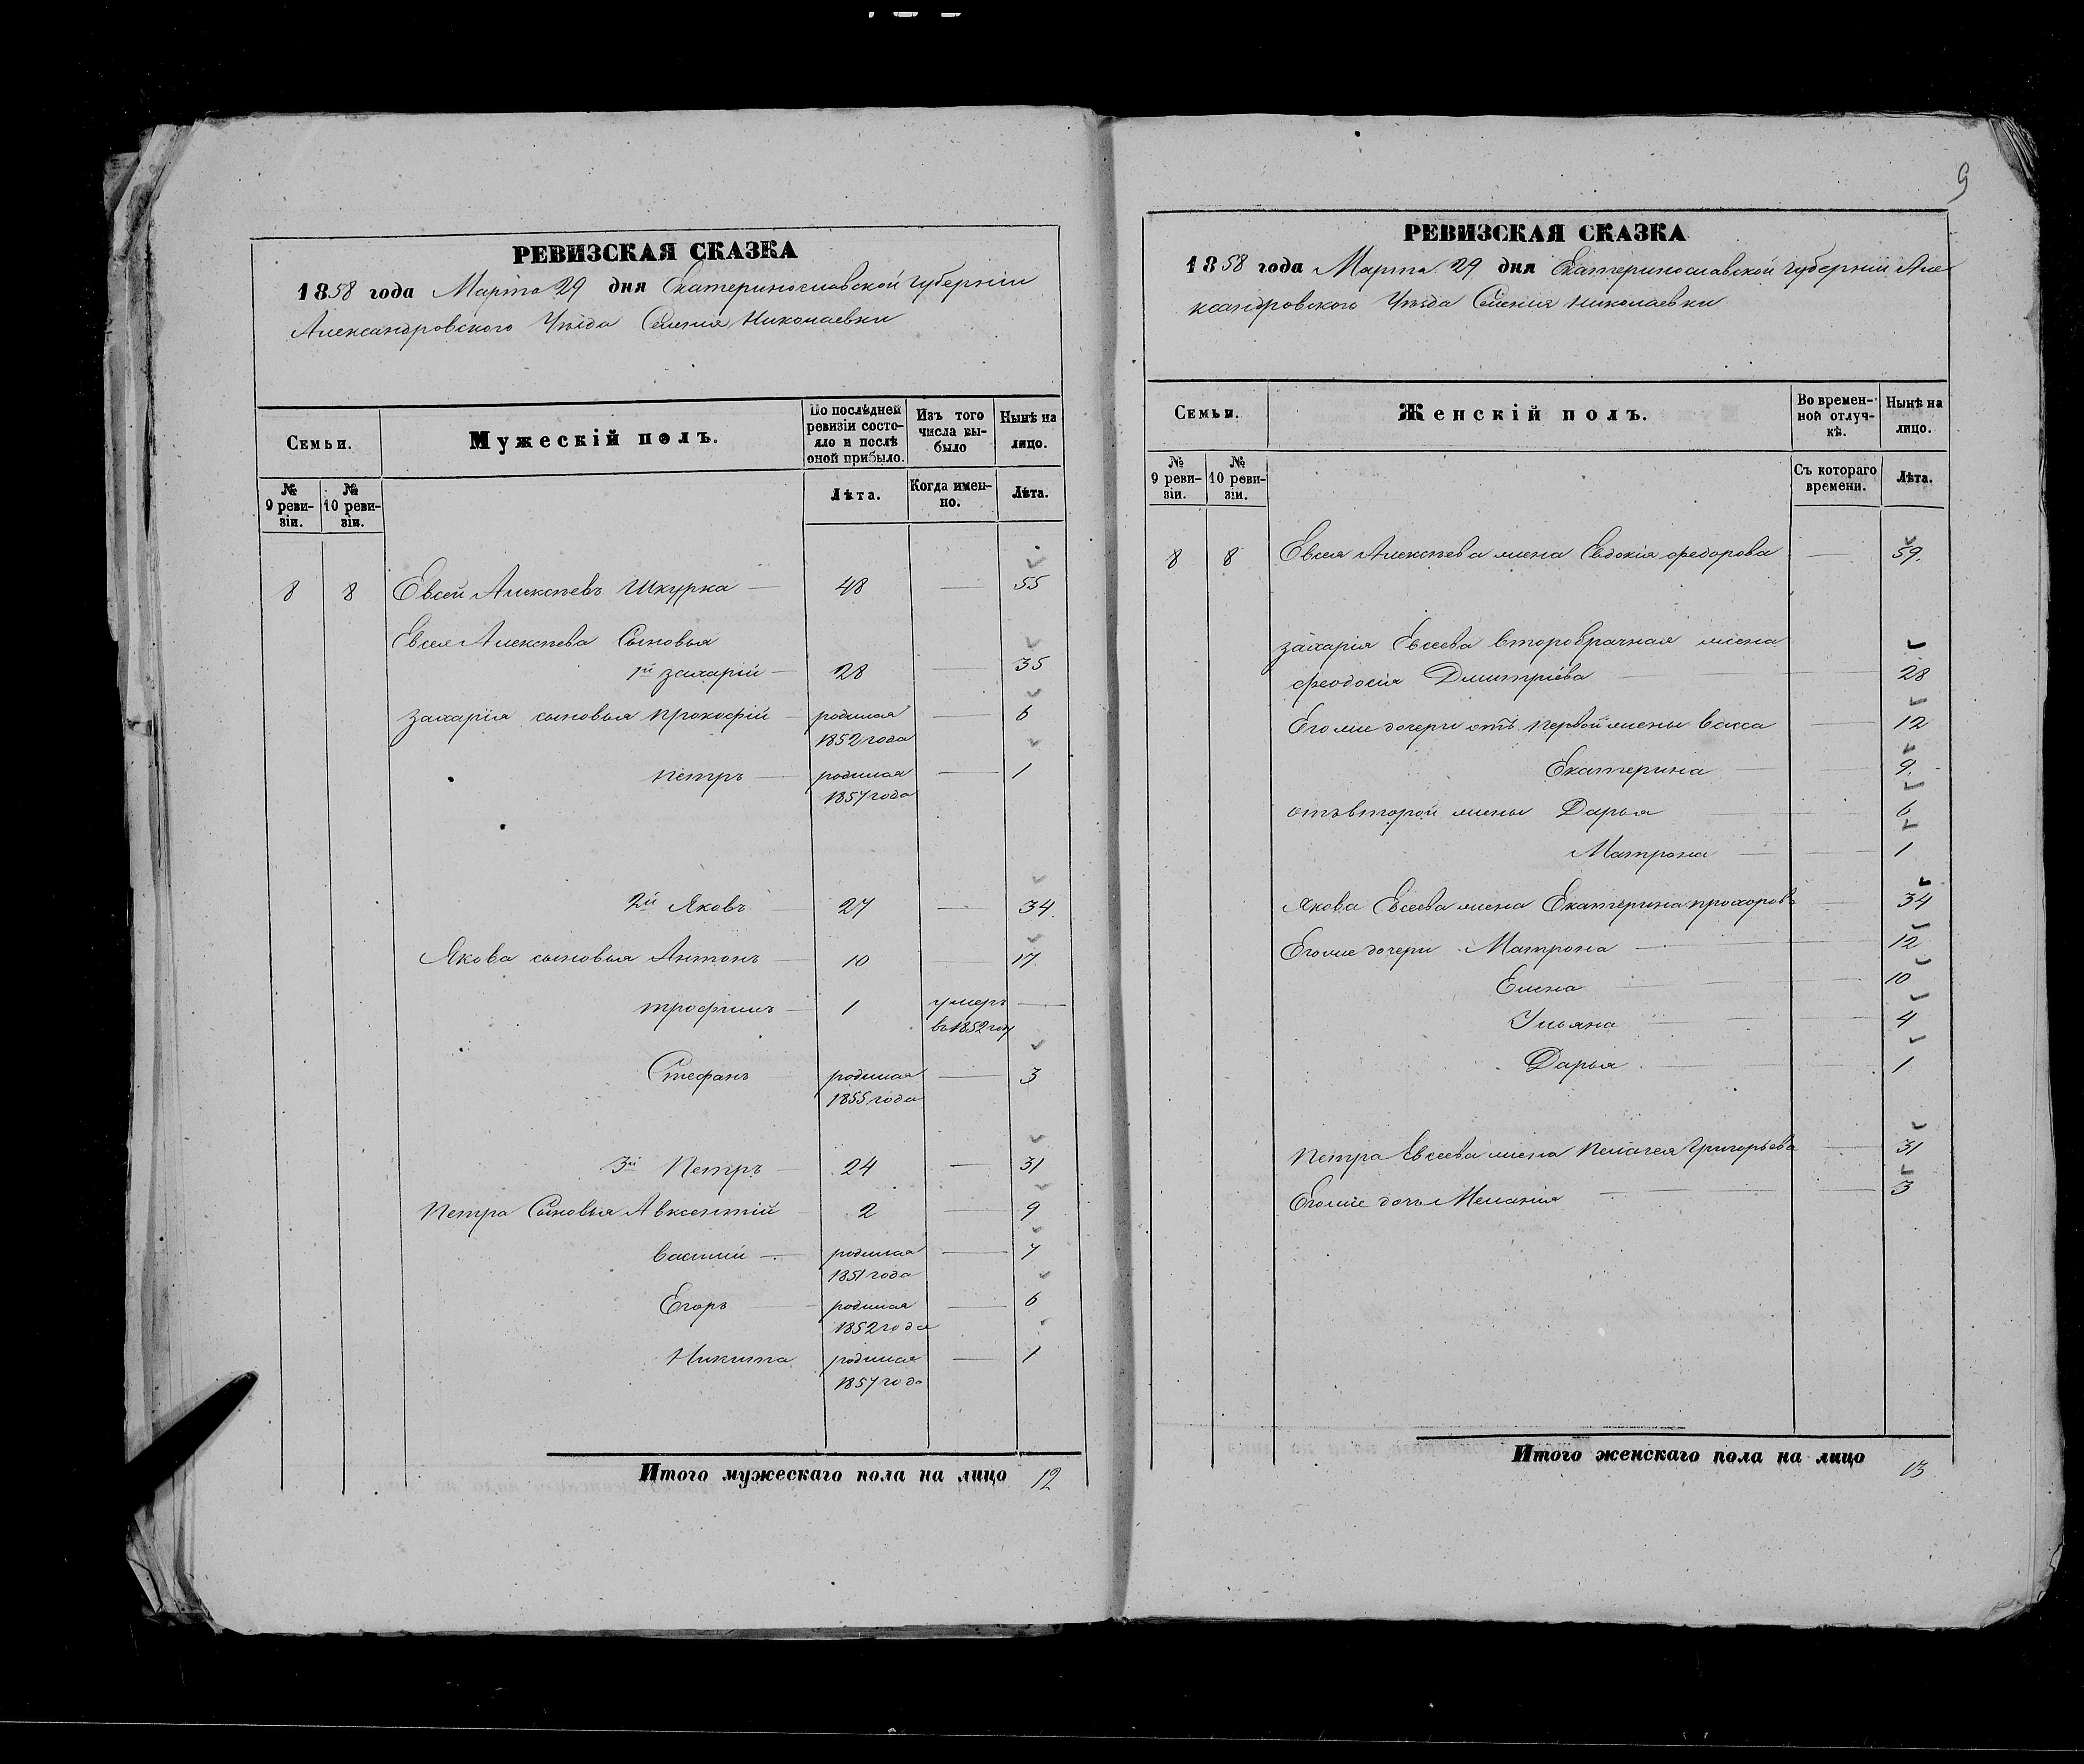 9
РЕВИЗСКАЯ СКАЗКА
1858 года Марта 29 дня Екатеринославской губерніи
Александровского Уѣзда Селенія Николаевки
Семьи.
Мужескій полъ.
По послѣдней ревизіи состояло и послѣ оной прибыло.
Изъ того числа выбыло
Нынѣ на лицо.
№ 9 ревизіи.
№ 10 ревизіи.
Лѣта.
Когда именно.
Лѣта.
8 8 Евсей Алексѣевъ Шкурка — 48 — 55
Евсея Алексѣева Сыновья
1й захарій — 28 — 35
захарія сыновья прокофій — родился — 6
1852 года
петръ — родился — 1
1857 года
2й Яковъ — 27 — 34
Якова сыновья Антонъ — 10 17
трофимъ — 1 умеръ —
въ 1852 году
Стефанъ родился — 3
1855 года
3й Петръ 24 — 31
Петра Сыновья Авксентій 2 — 9
василий — родился — 7
1851 года
Егоръ — родился — 6
1852 года
Никита родился — 1
1857 года
Итого мужескаго пола на лицо 12
РЕВИЗСКАЯ СКАЗКА
1858 года Марта 29 дня Екатеринославской губерніи Але
ксандровского Уѣзда Селенія Николаевки
Семьи.
Женскій полъ.
Во временной отлучкѣ.
Нынѣ на лицо.
№ 9 ревизіи.
№ 10 ревизіи.
Съ котораго времени.
Лѣта.
8 8 Евсея Алексѣева жена Евдокія федорова — 59.
захарія Евсеева второбрачная жена
феодосія Дмитріева — 28
Его же дочери отъ первой жены васса — 12
Екатерина — 9.
отъ второй жены Дарья — 6
Матрона — 1
Якова Евсеева жена Екатерина прохорова — 34
Его же дочери Матрона — 12
Елена — 10
Ульяна — 4
Дарья — 1
петра Евсеева жена пелагея Григорьева — 31
Его же дочь Меланія — 3
Итого женскаго пола на лицо 13